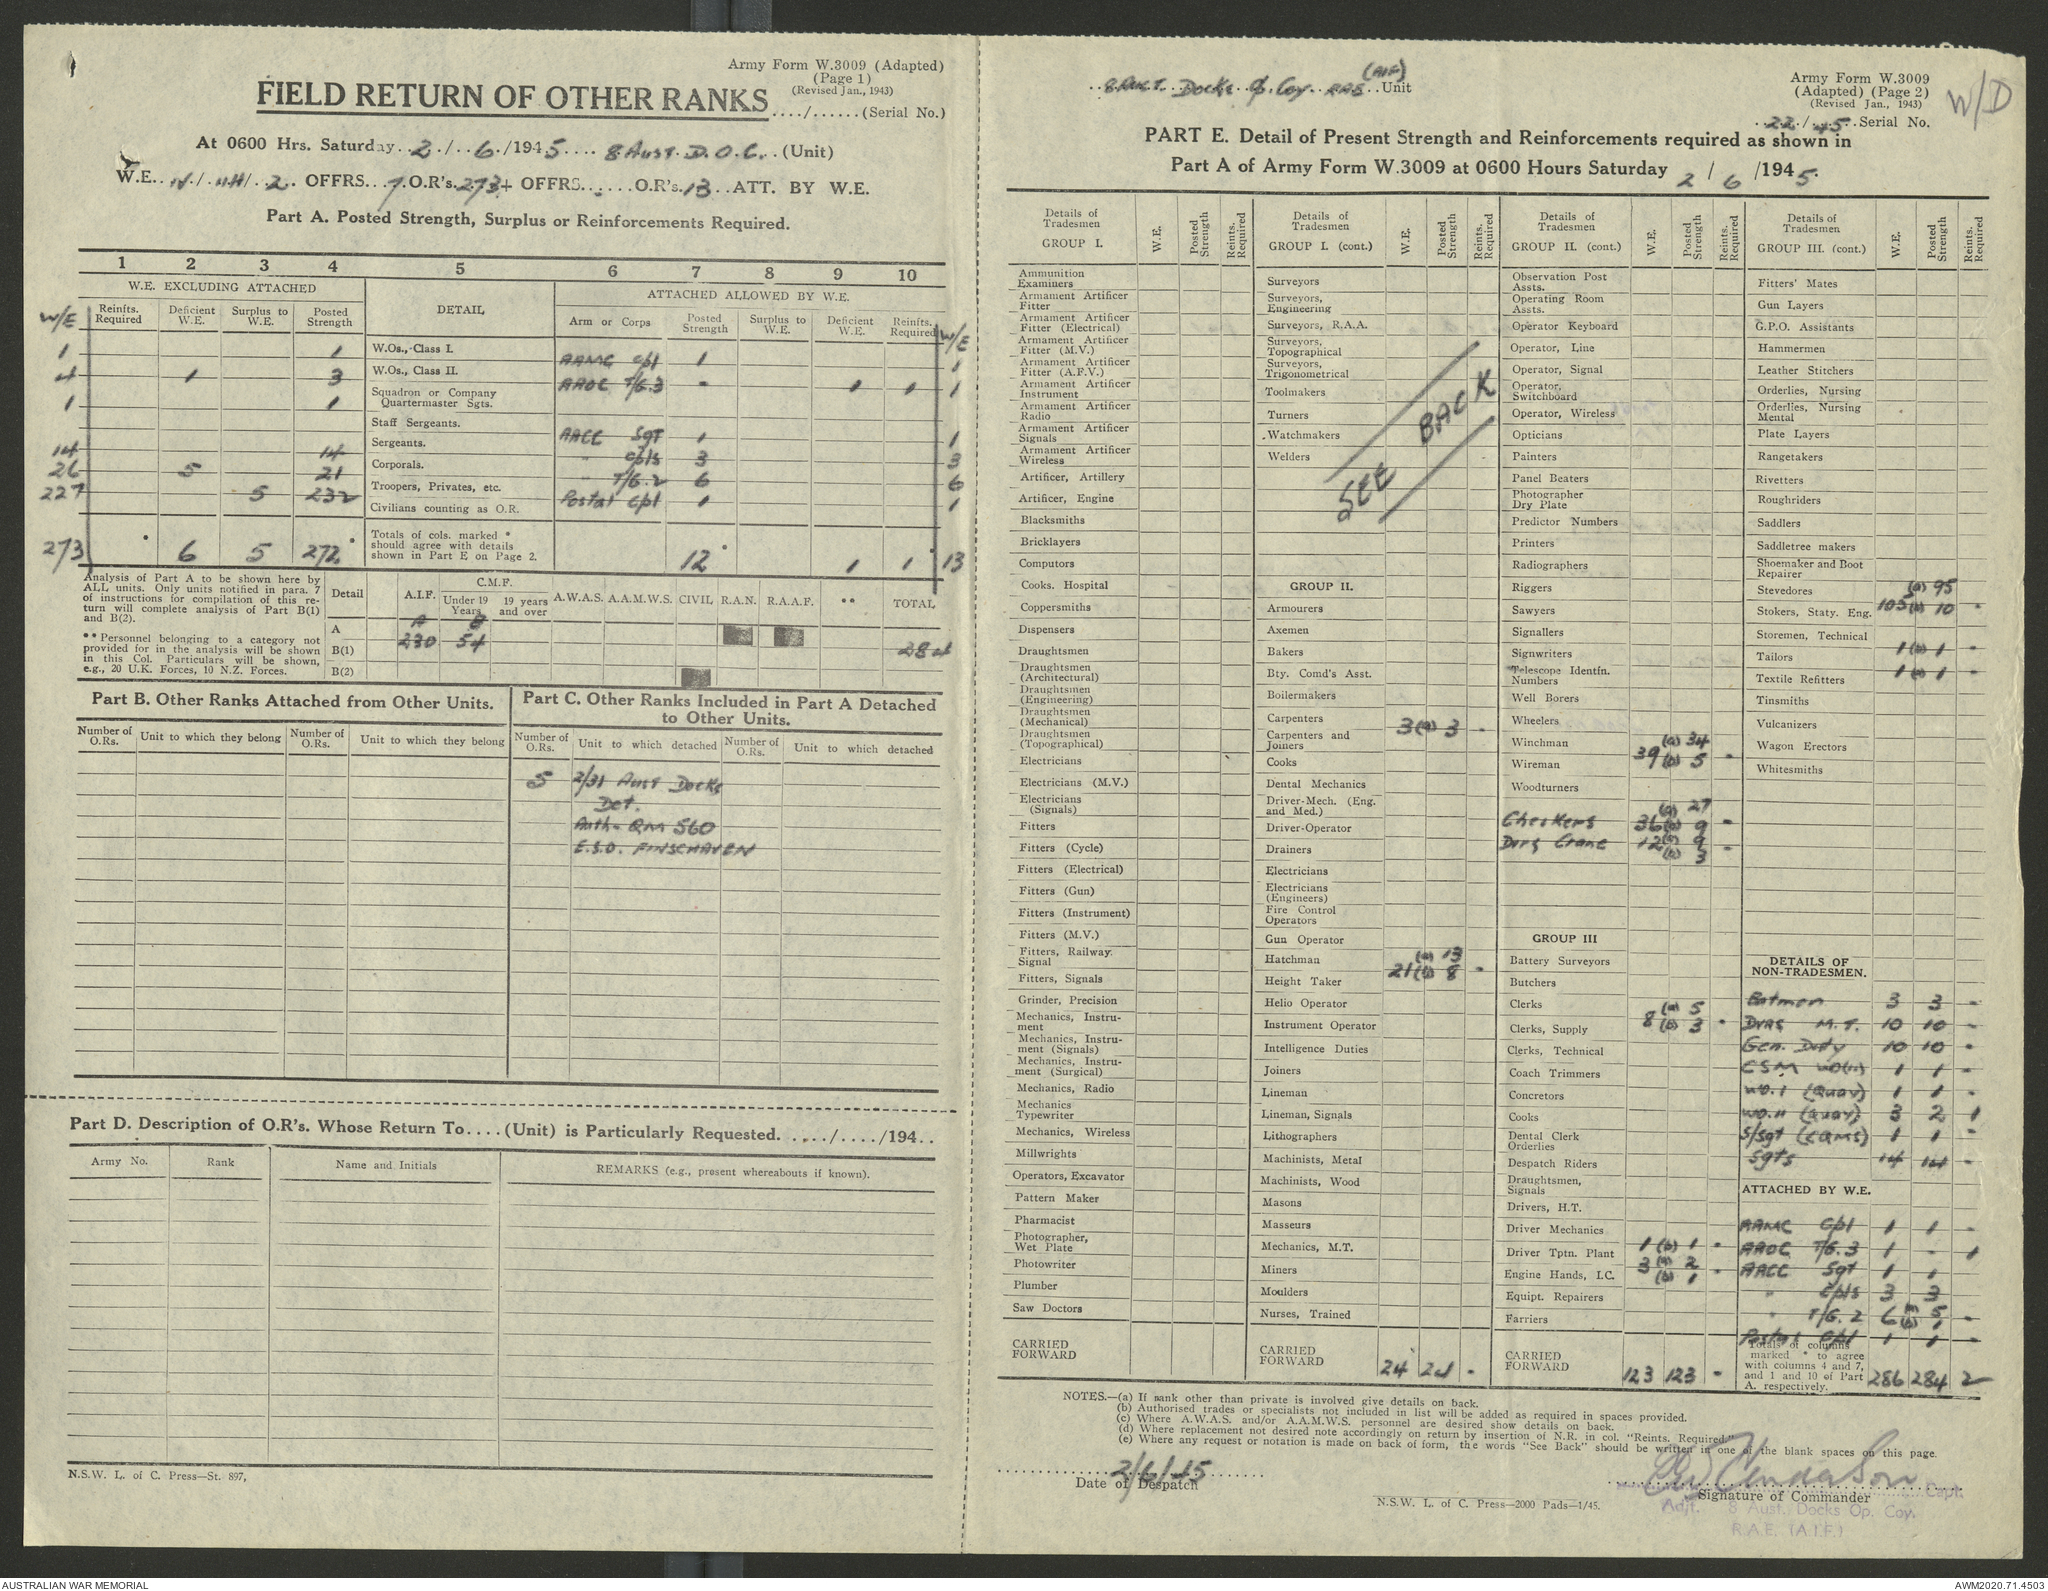 Army Form W.3009 (Adapted)
(Page 1)
(Revised Jan., 1943)
FIELD RETURN OF OTHER RANKS
..../...... (Serial No.)
At 0600 Hrs. Saturday..2./..6./1945.... 8 Aust. D.O.C...(Unit)
W.E... OFFRS...7.O.R's.273+ OFFRS.......O.R's.13..ATT. BY W.E.
Part A. Posted Strength, Surplus or Reinforcements Required.
1 2 3 4 5 6 7 8 9 10
W.E. EXCLUDING ATTACHED DETAIL ATTACHED ALLOWED BY W.E.
W/E Reinfts. Required Deficient W.E. Surplus to W.E. Posted Strength Arm or Corps Posted Strength Surplus to W.E. Deficient W.E. Reinfts. Required W/E
1 1 W.Os., Class I. AAMC Cpl 1 1
4 1 3 W.Os., Class II. AAOC T/G.3 - 1 1 1
1 1 Squadron or Company Quartermaster Sgts.
Staff Sergeants. AACC Sgt 1 1
14 14 Sergeants. " Cpls 3 3
26 5 21 Corporals. " T/G.2 6 6
227 5 232 Troopers, Privates, etc. Postal Cpl 1 1
Civilians counting as O.R.
273 * 6 5 272* Totals of cols. marked * should agree with details shown in Part E on Page 2. 12* 1 1* 13
Analysis of Part A to be shown here by ALL units. Only units notified in para. 7 of instructions for compilation of this return will complete analysis of Part B(1) and B(2).
** Personnel belonging to a category not provided for in the analysis will be shown in this Col. Particulars will be shown, e.g., 20 U.K. Forces, 10 N.Z. Forces.
C.M.F.
Detail A.I.F. Under 19 Years 19 years and over A.W.A.S. A.A.M.W.S. CIVIL R.A.N. R.A.A.F. ** TOTAL
A B
A 230 54 284
B(1)
B(2)
Part B. Other Ranks Attached from Other Units.
Number of O.Rs. Unit to which they belong Number of O.Rs. Unit to which they belong
Part C. Other Ranks Included in Part A Detached to Other Units.
Number of O.Rs. Unit to which detached Number of O.Rs. Unit to which detached
5 2/31 Aust Docks
Det.
Auth. QM 560
E.S.O. FINSCHAVEN
Part D. Description of O.R's. Whose Return To....(Unit) is Particularly Requested. ..../..../194..
Army No. Rank Name and Initials REMARKS (e.g., present whereabouts if known).
N.S.W. L. of C. Press—St. 897,
8 Aust. Docks Op Coy RAE (AIF) Unit
Army Form W.3009
(Adapted) (Page 2)
(Revised Jan., 1943)
W/D
22/45 Serial No.
PART E. Detail of Present Strength and Reinforcements required as shown in
Part A of Army Form W.3009 at 0600 Hours Saturday 2 / 6 /1945.
Details of Tradesmen GROUP I. W.E. Posted Strength Reints. Required
Ammunition Examiners
Armament Artificer Fitter
Armament Artificer Fitter (Electrical)
Armament Artificer Fitter (M.V.)
Armament Artificer Fitter (A.F.V.)
Armament Artificer Instrument
Armament Artificer Radio
Armament Artificer Signals
Armament Artificer Wireless
Artificer, Artillery
Artificer, Engine
Blacksmiths
Bricklayers
Computors
Cooks. Hospital
Coppersmiths
Dispensers
Draughtsmen
Draughtsmen (Architectural)
Draughtsmen (Engineering)
Draughtsmen (Mechanical)
Draughtsmen (Topographical)
Electricians
Electricians (M.V.)
Electricians (Signals)
Fitters
Fitters (Cycle)
Fitters (Electrical)
Fitters (Gun)
Fitters (Instrument)
Fitters (M.V.)
Fitters, Railway Signal
Fitters, Signals
Grinder, Precision
Mechanics, Instrument
Mechanics, Instrument (Signals)
Mechanics, Instrument (Surgical)
Mechanics, Radio
Mechanics Typewriter
Mechanics, Wireless
Millwrights
Operators, Excavator
Pattern Maker
Pharmacist
Photographer, Wet Plate
Photowriter
Plumber
Saw Doctors
CARRIED FORWARD
Details of Tradesmen GROUP I. (cont.) W.E. Posted Strength Reints. Required
Surveyors
Surveyors, Engineering
Surveyors, R.A.A.
Surveyors, Topographical
Surveyors, Trigonometrical
Toolmakers
Turners
Watchmakers
Welders
SEE BACK
GROUP II.
Armourers
Axemen
Bakers
Bty. Comd's Asst.
Boilermakers
Carpenters
Carpenters and Joiners 3 (a) 3 -
Cooks
Dental Mechanics
Driver-Mech. (Eng. and Med.)
Driver-Operator
Drainers
Electricians
Electricians (Engineers)
Fire Control Operators
Gun Operator
Hatchman (a) 13
Height Taker 21 (b) 8 -
Helio Operator
Instrument Operator
Intelligence Duties
Joiners
Lineman
Lineman, Signals
Lithographers
Machinists, Metal
Machinists, Wood
Masons
Masseurs
Mechanics, M.T.
Miners
Moulders
Nurses, Trained
CARRIED FORWARD 24 24 -
Details of Tradesmen GROUP II. (cont.) W.E. Posted Strength Reints. Required
Observation Post Assts.
Operating Room Assts.
Operator Keyboard
Operator, Line
Operator, Signal
Operator, Switchboard
Operator, Wireless
Opticians
Painters
Panel Beaters
Photographer Dry Plate
Predictor Numbers
Printers
Radiographers
Riggers
Sawyers
Signallers
Signwriters
Telescope Identfn. Numbers
Well Borers
Wheelers
Winchman (a) 34
Wireman 39 (b) 5 -
Woodturners
Checkers 36 (a) 27 (b) 9 -
Dvrs Crane 12 (a) 9 (b) 3 -
GROUP III
Battery Surveyors
Butchers
Clerks (a) 5
Clerks, Supply 8 (b) 3 -
Clerks, Technical
Coach Trimmers
Concretors
Cooks
Dental Clerk Orderlies
Despatch Riders
Draughtsmen, Signals
Drivers, H.T.
Driver Mechanics
Driver Tptn. Plant 1 (b) 1 -
Engine Hands, I.C. 3 (a) 2 (b) 1 -
Equipt. Repairers
Farriers
CARRIED FORWARD 123 123 -
Details of Tradesmen GROUP III. (cont.) W.E. Posted Strength Reints. Required
Fitters' Mates
Gun Layers
G.P.O. Assistants
Hammermen
Leather Stitchers
Orderlies, Nursing
Orderlies, Nursing Mental
Plate Layers
Rangetakers
Rivetters
Roughriders
Saddlers
Saddletree makers
Shoemaker and Boot Repairer
Stevedores (a) 95
Stokers, Staty. Eng. 105 (b) 10 -
Storemen, Technical
Tailors 1 (b) 1 -
Textile Refitters 1 (a) 1 -
Tinsmiths
Vulcanizers
Wagon Erectors
Whitesmiths
DETAILS OF NON-TRADESMEN.
Batmen 3 3 -
Dvrs M.T. 10 10 -
Gen. Duty 10 10 -
CSM WO(II) 1 1 -
WO.I (Quay) 1 1 -
WO.II (Quay) 3 2 1
S/Sgt (CQMS) 1 1 -
Sgts 14 14 -
ATTACHED BY W.E.
AAMC Cpl 1 1 -
AAOC T/G.3 1 - 1
AACC Sgt 1 1
" Cpls 3 3
" T/G.2 6 (a) 5 (b) 1 -
Postal Cpl 1 1 -
Totals of columns marked * to agree with columns 4 and 7, and 1 and 10 of Part A. respectively. 286 284 2
NOTES.—(a) If rank other than private is involved give details on back.
(b) Authorised trades or specialists not included in list will be added as required in spaces provided.
(c) Where A.W.A.S. and/or A.A.M.W.S. personnel are desired show details on back.
(d) Where replacement not desired note accordingly on return by insertion of N.R. in col. "Reints. Required"
(e) Where any request or notation is made on back of form, the words "See Back" should be written in one of the blank spaces on this page.
2/6/45
Date of Despatch
Signature of Commander
Capt.
Adjt. 8 Aust. Docks Op. Coy.
R.A.E. (A.I.F.)
N.S.W. L. of C. Press—2000 Pads—1/45.
AUSTRALIAN WAR MEMORIAL
AWM2020.71.4503